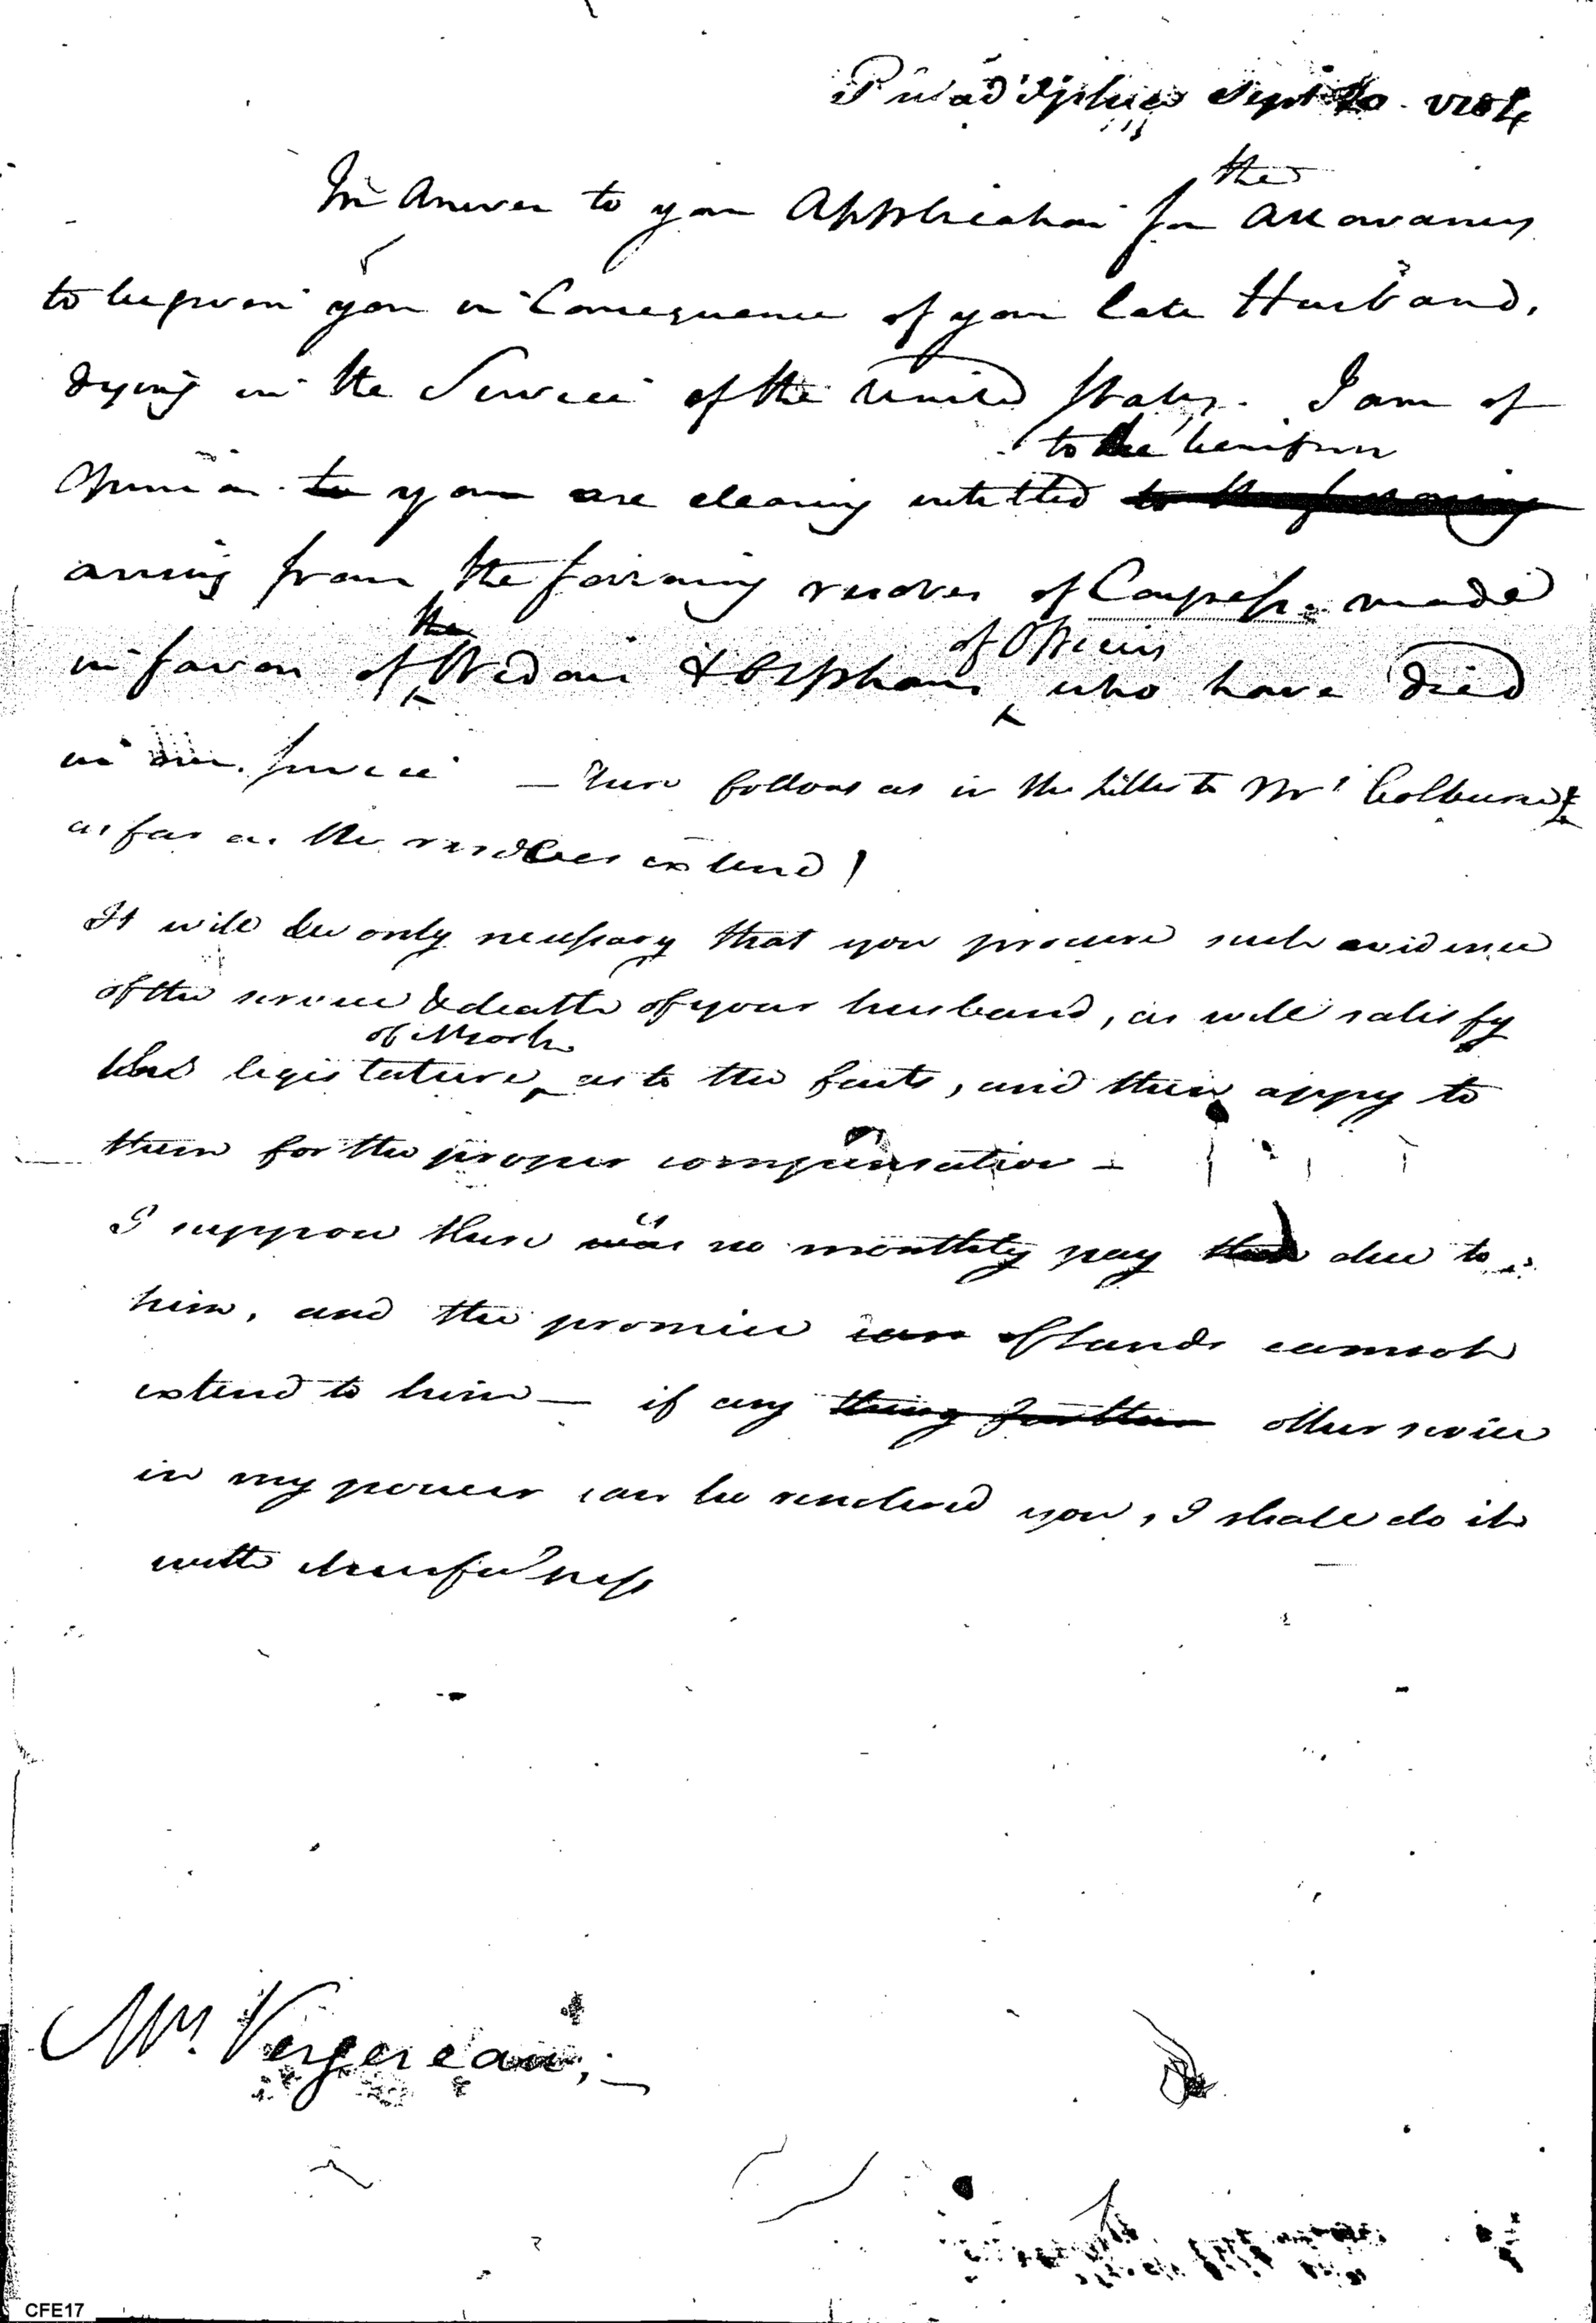 Philadelphia Sept 20. 1784
In Answer to your Application for the Allowances
to be given you in Consequence of your late Husband,
dying in the Service of the United States. I am of
Opinion to you are clearly entitled to the to the benefits
arising from the following resolves of Congress. made
in favor of the Widows & Orphans of Officers who have died
in our service — here follows as in the letter to Mrs Colburne
as far as the resolves extend)
It will be only necessary that you procure such evidence
of the service & death of your husband, as will satisfy
the legislature of N York as to the facts, and then appy to
them for the proper compensation —
I suppose there was is no monthly pay then due to
him, and the promise can of lands cannot
extend to him — if any thing further other service
in my power can be rendered you, I shall do it
with cheerfulness
Mrs. Vergereau,
CFE17